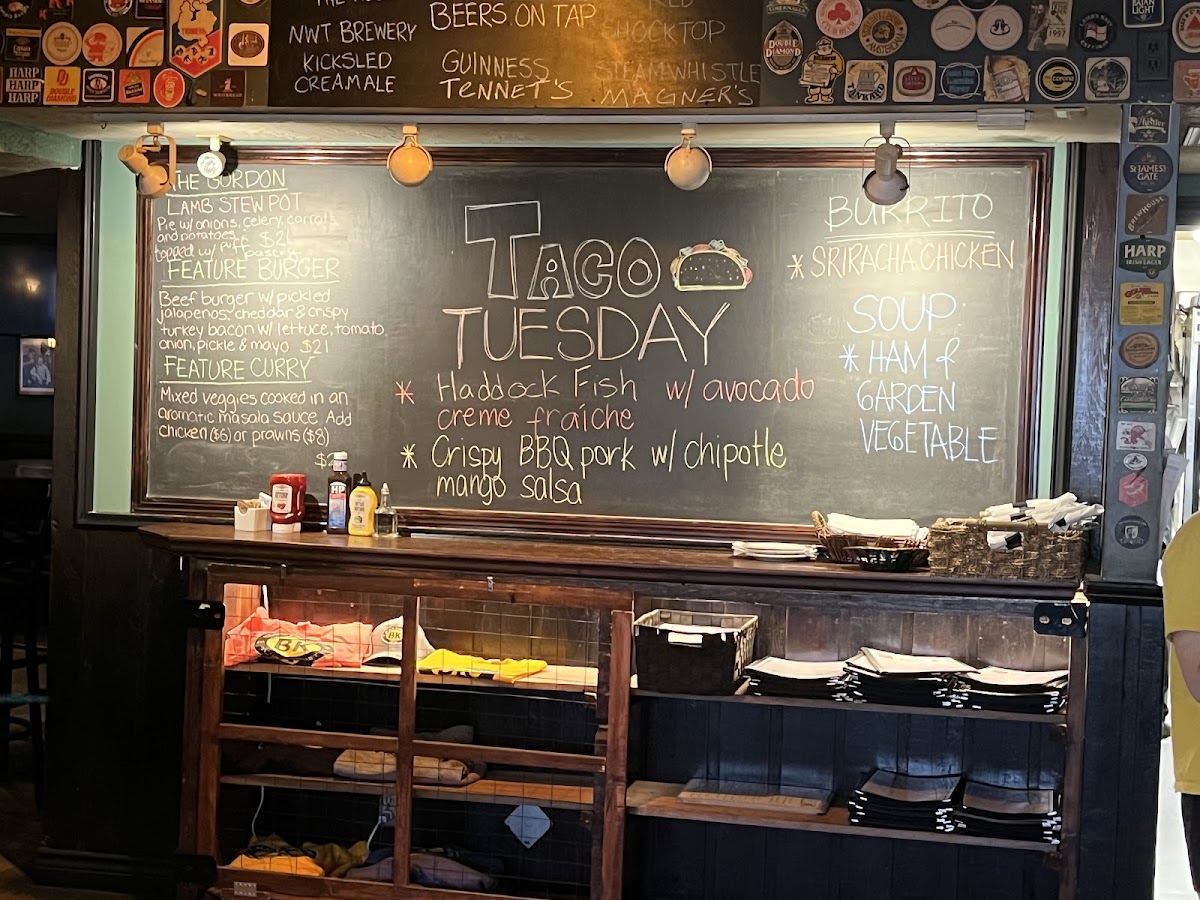 NWT BREWERY
KICKSLED
CREAM ALE
BEERS ON TAP
GUINNESS
TENNET'S
SHOCKTOP
STEAMWHISTLE
MAGNER'S
HARP
HARP
HARP
DOUBLE
DIAMOND
DOUBLE
DIAMOND
Corona
THE GORDON
LAMB STEW POT
Pie w/ onions, celery, carrots
and potatoes
topped w/ puff pastry
FEATURE BURGER
Beef burger w/ pickled
jalapenos, cheddar & crispy
turkey bacon w/ lettuce, tomato
onion, pickle & mayo $21
FEATURE CURRY
Mixed veggies cooked in an
aromatic masala sauce. Add
chicken ($6) or prawns ($8)
TACO
TUESDAY
* Haddock Fish w/ avocado
creme fraîche
* Crispy BBQ pork w/ chipotle
mango salsa
BURRITO
* SRIRACHA CHICKEN
SOUP
* HAM &
GARDEN
VEGETABLE
ST JAMES'S
GATE
BREWHOUSE
HARP
HP
BK
BK